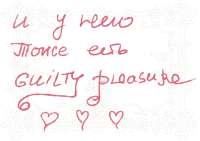 и у него
тоже есть
GUILTY pleasure